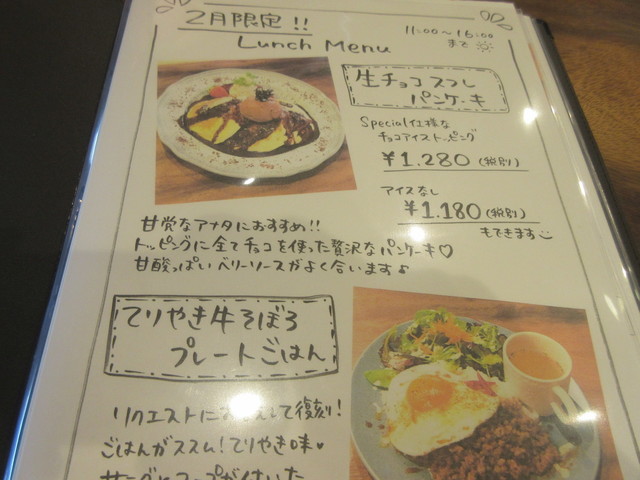 2月限定!!
Lunch Menu
11:00～16:00
まで
生チョコスフレ
パンケーキ
Special仕様な
チョコアイストッピング
¥1.280(税別)
アイスなし
¥1.180(税別)
もできます
甘党なアナタにおすすめ!!
トッピングに全てチョコを使った贅沢なパンケーキ♡
甘酸っぱいベリーソースがよく合います♪
てりやき牛そぼろ
プレートごはん
リクエストにお して復刻!
ごはんがススム!てりやき味♥
サラダとスープが付いた